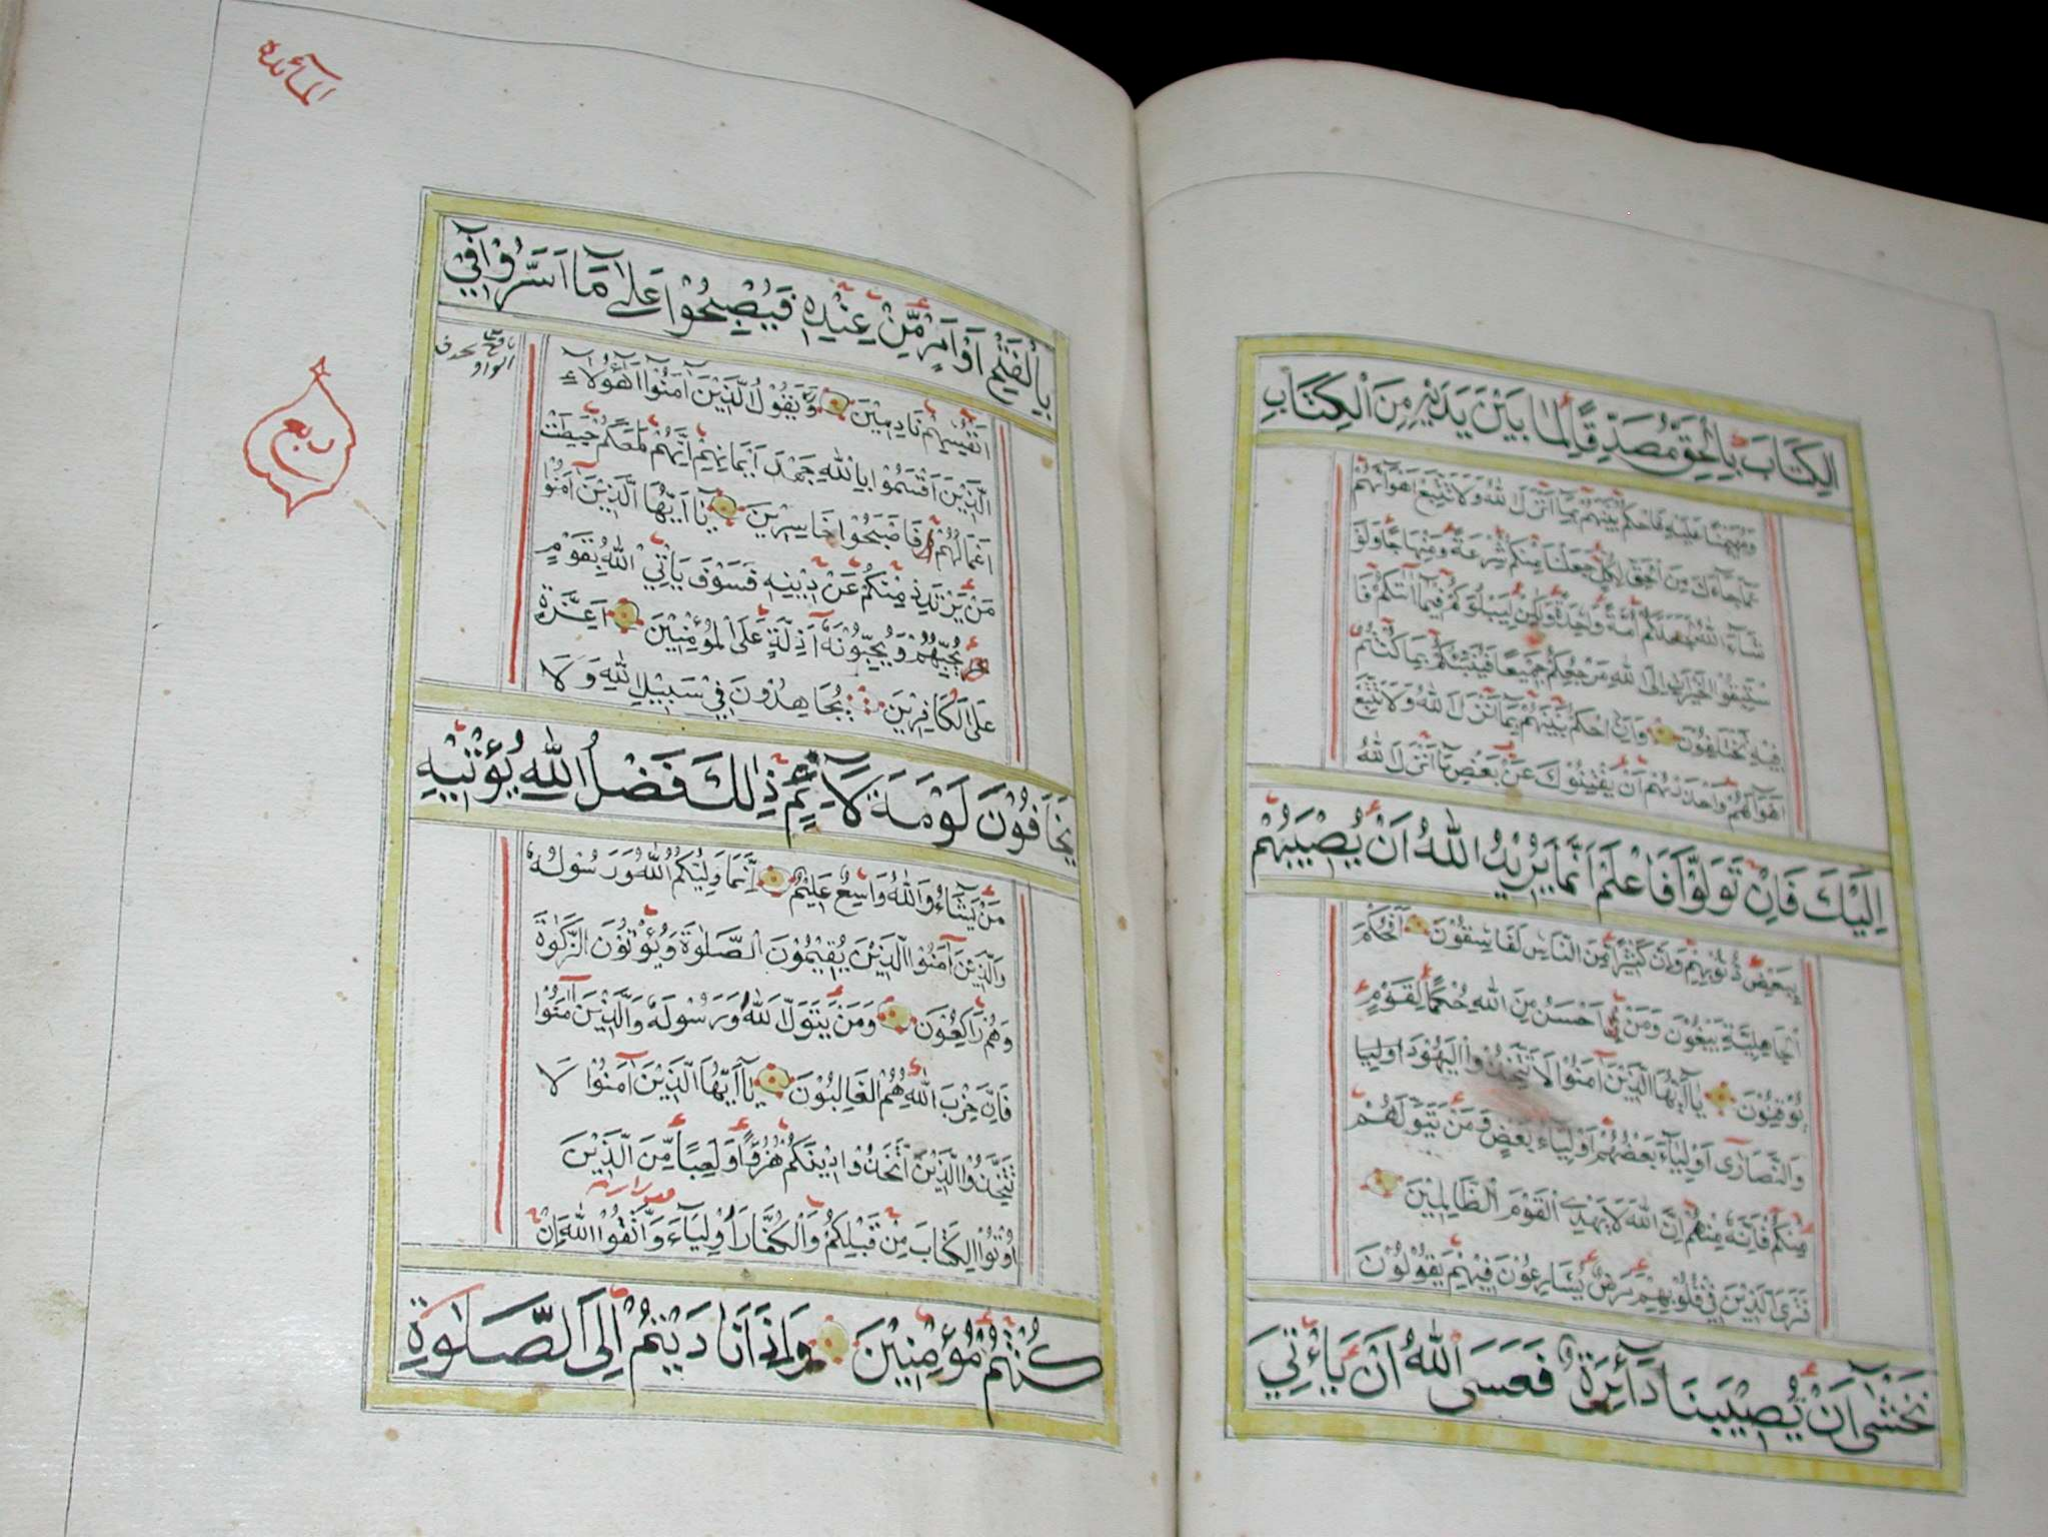 اَلْكِتَابَ بِالْحَقِّ مُصَدِّقًا لِمَا بَيْنَ يَدَيْهِ مِنَ الْكِتَابِ
وَمُهَيْمِنًا عَلَيْهِ فَاحْكُمْ بَيْنَهُمْ بِمَا اَنْزَلَ اللهُ وَلَا تَتَّبِعْ اَهْوَآءَهُمْ
عَمَّا جَآءَكَ مِنَ الْحَقِّ لِكُلٍّ جَعَلْنَا مِنْكُمْ شِرْعَةً وَمِنْهَاجًا وَلَوْ
شَآءَ اللهُ لَجَعَلَكُمْ اُمَّةً وَاحِدَةً وَلٰكِنْ لِيَبْلُوَكُمْ فِيمَا اٰتٰىكُمْ فَا
سْتَبِقُوا الْخَيْرَاتِ اِلَى اللهِ مَرْجِعُكُمْ جَمِيعًا فَيُنَبِّئُكُمْ بِمَا كُنْتُمْ
فِيهِ تَخْتَلِفُونَ وَاَنِ احْكُمْ بَيْنَهُمْ بِمَا اَنْزَلَ اللهُ وَلَا تَتَّبِعْ
اَهْوَآءَهُمْ وَاحْذَرْهُمْ اَنْ يَفْتِنُوكَ عَنْ بَعْضِ مَا اَنْزَلَ اللهُ
اِلَيْكَ فَاِنْ تَوَلَّوْا فَاعْلَمْ اَنَّمَا يُرِيْدُ اللهُ اَنْ يُصِيْبَهُمْ
بِبَعْضِ ذُنُوْبِهِمْ وَاِنَّ كَثِيْرًا مِنَ النَّاسِ لَفَاسِقُوْنَ اَفَحُكْمَ
الْجَاهِلِيَّةِ يَبْغُوْنَ وَمَنْ اَحْسَنُ مِنَ اللهِ حُكْمًا لِقَوْمٍ
يُوْقِنُوْنَ يَا اَيُّهَا الَّذِيْنَ آمَنُوْا لَا تَتَّخِذُوا الْيَهُوْدَ اوليا
وَالنَّصَارَى اَوْلِيَآءَ بَعْضُهُمْ اَوْلِيَاءُ بَعْضٍ وَمَنْ يَتَوَلَّهُمْ
مِنْكُمْ فَاِنَّهُ مِنْهُمْ اِنَّ اللهَ لَا يَهْدِي الْقَوْمَ الظَّالِمِيْنَ
فَتَرَى الَّذِيْنَ فِي قُلُوْبِهِمْ مَرَضٌ يُسَارِعُوْنَ فِيْهِمْ يَقُوْلُوْنَ
نَخْشٰى اَنْ تُصِيْبَنَا دَآئِرَةٌ فَعَسَى اللهُ اَنْ يَاْتِيَ
المآئدة
بِالْفَتْحِ اَوْ اَمْرٍ مِّنْ عِنْدِهِ فَيُصْبِحُوْا عَلٰى مَآ اَسَرُّوْا فِيْ
اَنْفُسِهِمْ نَادِمِيْنَ وَيَقُوْلُ الَّذِيْنَ آمَنُوْا اَهٰؤُلَاءِ
الَّذِيْنَ اَقْسَمُوْا بِاللهِ جَهْدَ اَيْمَانِهِمْ اِنَّهُمْ لَمَعَكُمْ حَبِطَتْ
اَعْمَالُهُمْ فَاَصْبَحُوْا خَاسِرِيْنَ يَآ اَيُّهَا الَّذِيْنَ آمَنُوْا
ربع
مَنْ يَرْتَدِدْ مِنْكُمْ عَنْ دِيْنِهِ فَسَوْفَ يَاْتِي اللهُ بِقَوْمٍ
يُحِبُّهُمْ وَيُحِبُّوْنَهُ اَذِلَّةٍ عَلَى الْمُؤْمِنِيْنَ اَعِزَّةٍ
عَلَى الْكَافِرِيْنَ يُجَاهِدُوْنَ فِيْ سَبِيْلِ اللهِ وَلَا
يَخَافُوْنَ لَوْمَةَ لَآئِمٍ ذٰلِكَ فَضْلُ اللهِ يُؤْتِيْهِ
مَنْ يَشَآءُ وَاللهُ وَاسِعٌ عَلِيْمٌ اِنَّمَا وَلِيُّكُمُ اللهُ وَرَسُوْلُهُ
وَالَّذِيْنَ آمَنُوا الَّذِيْنَ يُقِيْمُوْنَ الصَّلٰوةَ وَيُؤْتُوْنَ الزَّكٰوةَ
وَهُمْ رَاكِعُوْنَ وَمَنْ يَتَوَلَّ اللهَ وَرَسُوْلَهُ وَالَّذِيْنَ آمَنُوْا
فَاِنَّ حِزْبَ اللهِ هُمُ الْغَالِبُوْنَ يَآ اَيُّهَا الَّذِيْنَ آمَنُوْا لَا
تَتَّخِذُوا الَّذِيْنَ اتَّخَذُوْا دِيْنَكُمْ هُزُوًا وَلَعِبًا مِّنَ الَّذِيْنَ
اُوْتُوا الْكِتَابَ مِنْ قَبْلِكُمْ وَالْكُفَّارَ اَوْلِيَآءَ وَاتَّقُوا اللهَ اِنْ
كُنْتُمْ مُؤْمِنِيْنَ وَاِذَا نَادَيْتُمْ اِلَى الصَّلٰوةِ